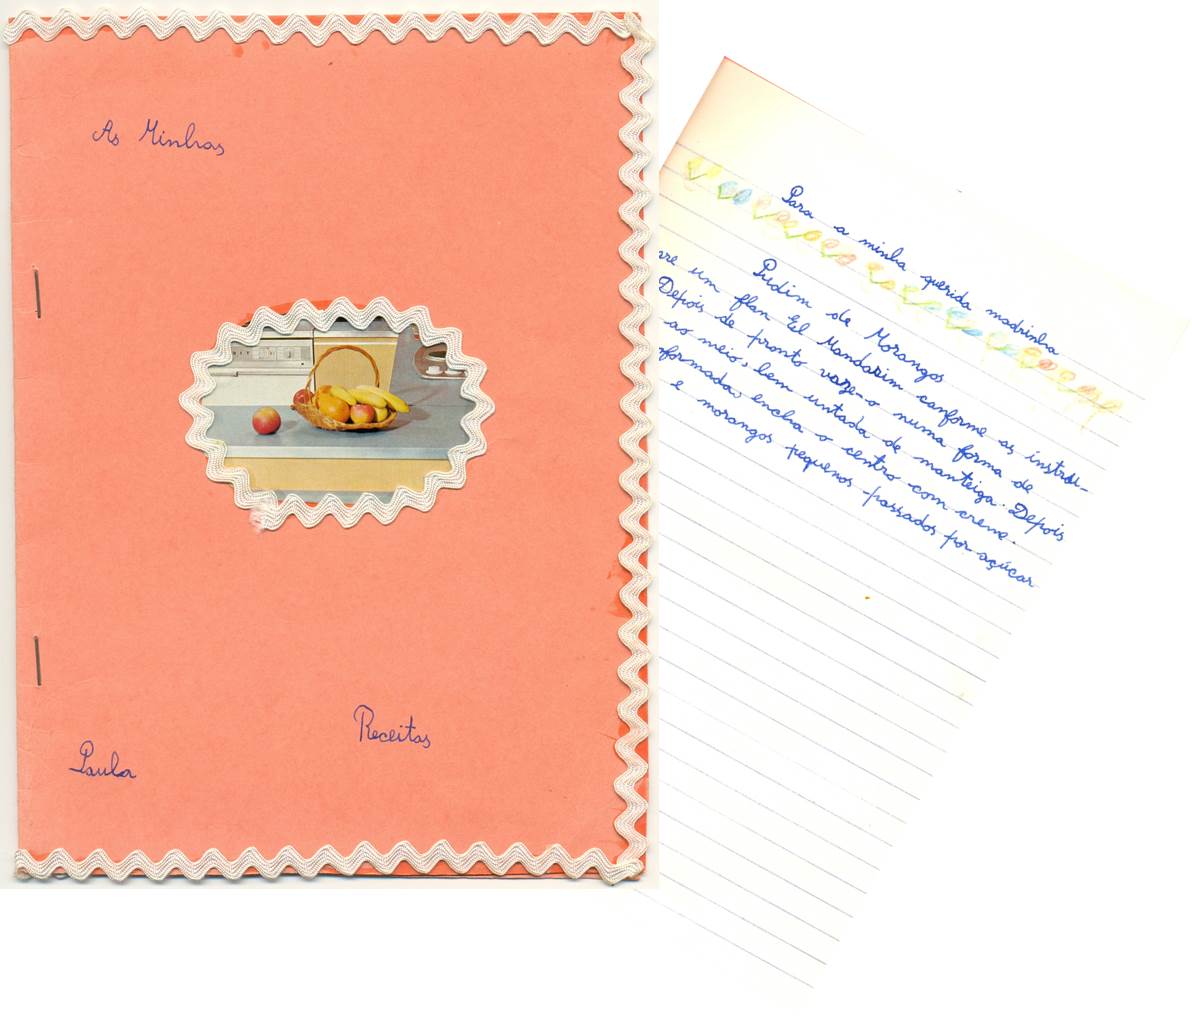 As Minhas
Receitas
Paula
Para a minha querida madrinha
Pudim de Morangos
um flan El Mandarim conforme as
Depois de pronto vaze-o numa forma de
ao meio bem untada de manteiga. Depois
encha o centro com creme.
e morangos pequenos passados por açúcar